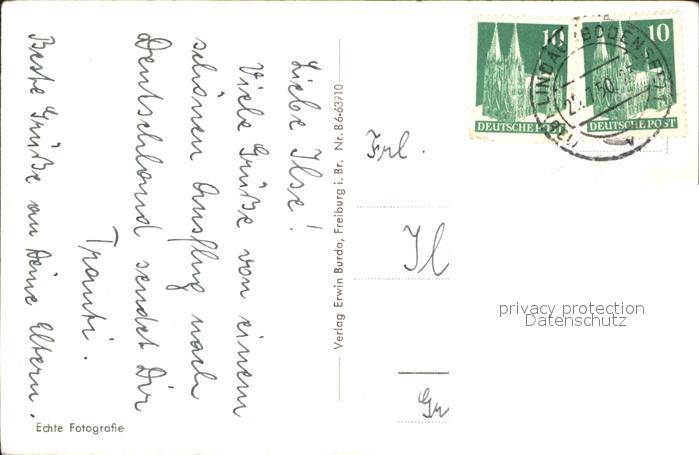 Liebe Ilse!
Viele Grüße von einem
schönen Ausflug nach
Deutschland sendet Dir
Trauti.
Beste Grüße an Deine Eltern.
Echte Fotografie
Verlag Erwin Burda, Freiburg i. Br. Nr. B 6-63910
Frl.
Il
Gr
10
DEUTSCHE POST
10
DEUTSCHE POST
LINDAU (BODENSEE)
50
privacy protection
Datenschutz